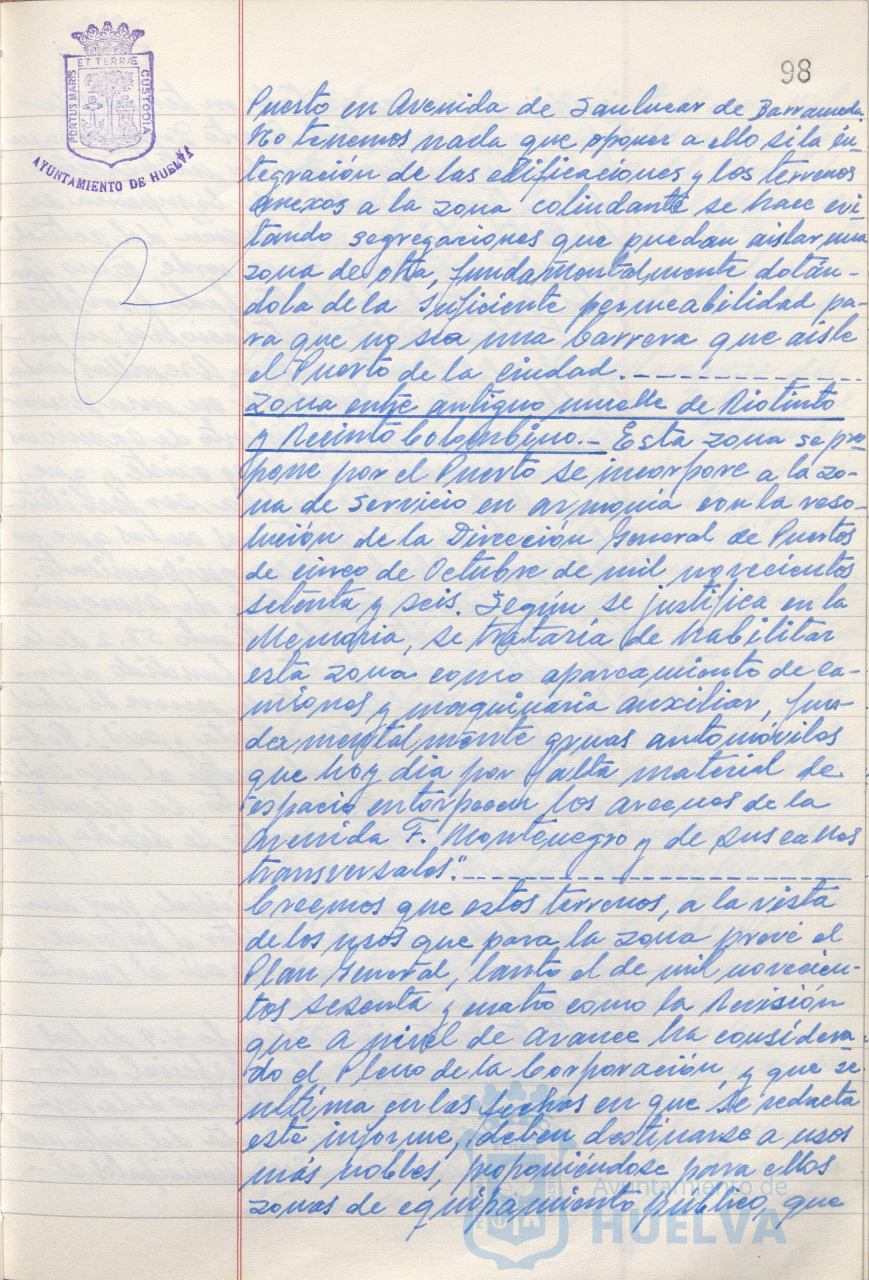 98
ET TERRÆ
PORTUS MARIS
CUSTODIA
AYUNTAMIENTO DE HUELVA
Puerto en Avenida de Sanlucar de Barrameda.
No tenemos nada que oponer a ello si la in-
tegración de las edificaciones y los terrenos
anexos a la zona colindante se hace evi
tando segregaciones que puedan aislar una
zona de otra, fundamentalmente dotán-
dola de la suficiente permeabilidad pa-
ra que no sea una barrera que aisle
el Puerto de la ciudad.
Zona entre antiguo muelle de Riotinto
y Recinto Colombino.- Esta zona se pro
pone por el Puerto se incorpore a la zo-
na de servicio en armonía con la reso-
lución de la Dirección General de Puertos
de cinco de Octubre de mil novecientos
setenta y seis. Según se justifica en la
Memoria, se trataría de habilitar
esta zona como aparcamiento de ca-
miones y maquinaria auxiliar, fun-
damentalmente gruas automóviles
que hoy día por falta material de
espacio entorpecen los arcenes de la
Avenida F. Montenegro y de sus calles
transversales".
Creemos que estos terrenos, a la vista
de los usos que para la zona prevé el
Plan General, tanto el de mil novecien-
tos sesenta y cuatro como la Revisión
que a nivel de avance ha considera-
do el Pleno de la Corporación, y que se
ultima en las fechas en que se redacta
este informe, deben destinarse a usos
más nobles, proponiéndose para ellos
zonas de equipamiento público, que
Ayuntamiento de
HUELVA